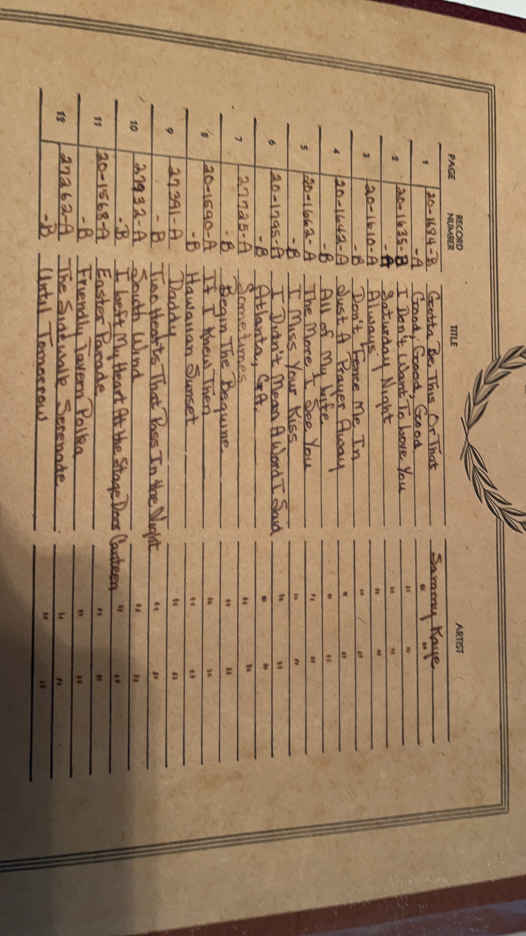 PAGE RECORD NUMBER TITLE ARTIST
1 20-1684-B Gotta Be This Or That Sammy Kaye
-A Good, Good, Good " "
2 20-1635-B I Don't Want To Love You " "
-A Saturday Night " "
3 20-1610-A Always " "
-B Don't Fence Me In " "
4 20-1642-A Just A Prayer Away " "
-B All of My Life " "
5 20-1662-A The More I See You " "
-B I Miss Your Kiss " "
6 20-1795-A I Didn't Mean A Word I Said " "
-B Atlanta, G.A. " "
7 27725-A Sometimes " "
-B Begin The Beguine " "
8 20-1590-A If I Knew Then " "
-B Hawaiian Sunset " "
9 27391-A Daddy " "
-B Two Hearts That Pass In the Night " "
10 27932-A South Wind " "
-B I Left My Heart At the Stage Door Canteen " "
11 20-1568-A Easter Parade " "
-B Friendly Tavern Polka " "
12 27262-A The Sidewalk Serenade " "
-B Until Tomorrow " "